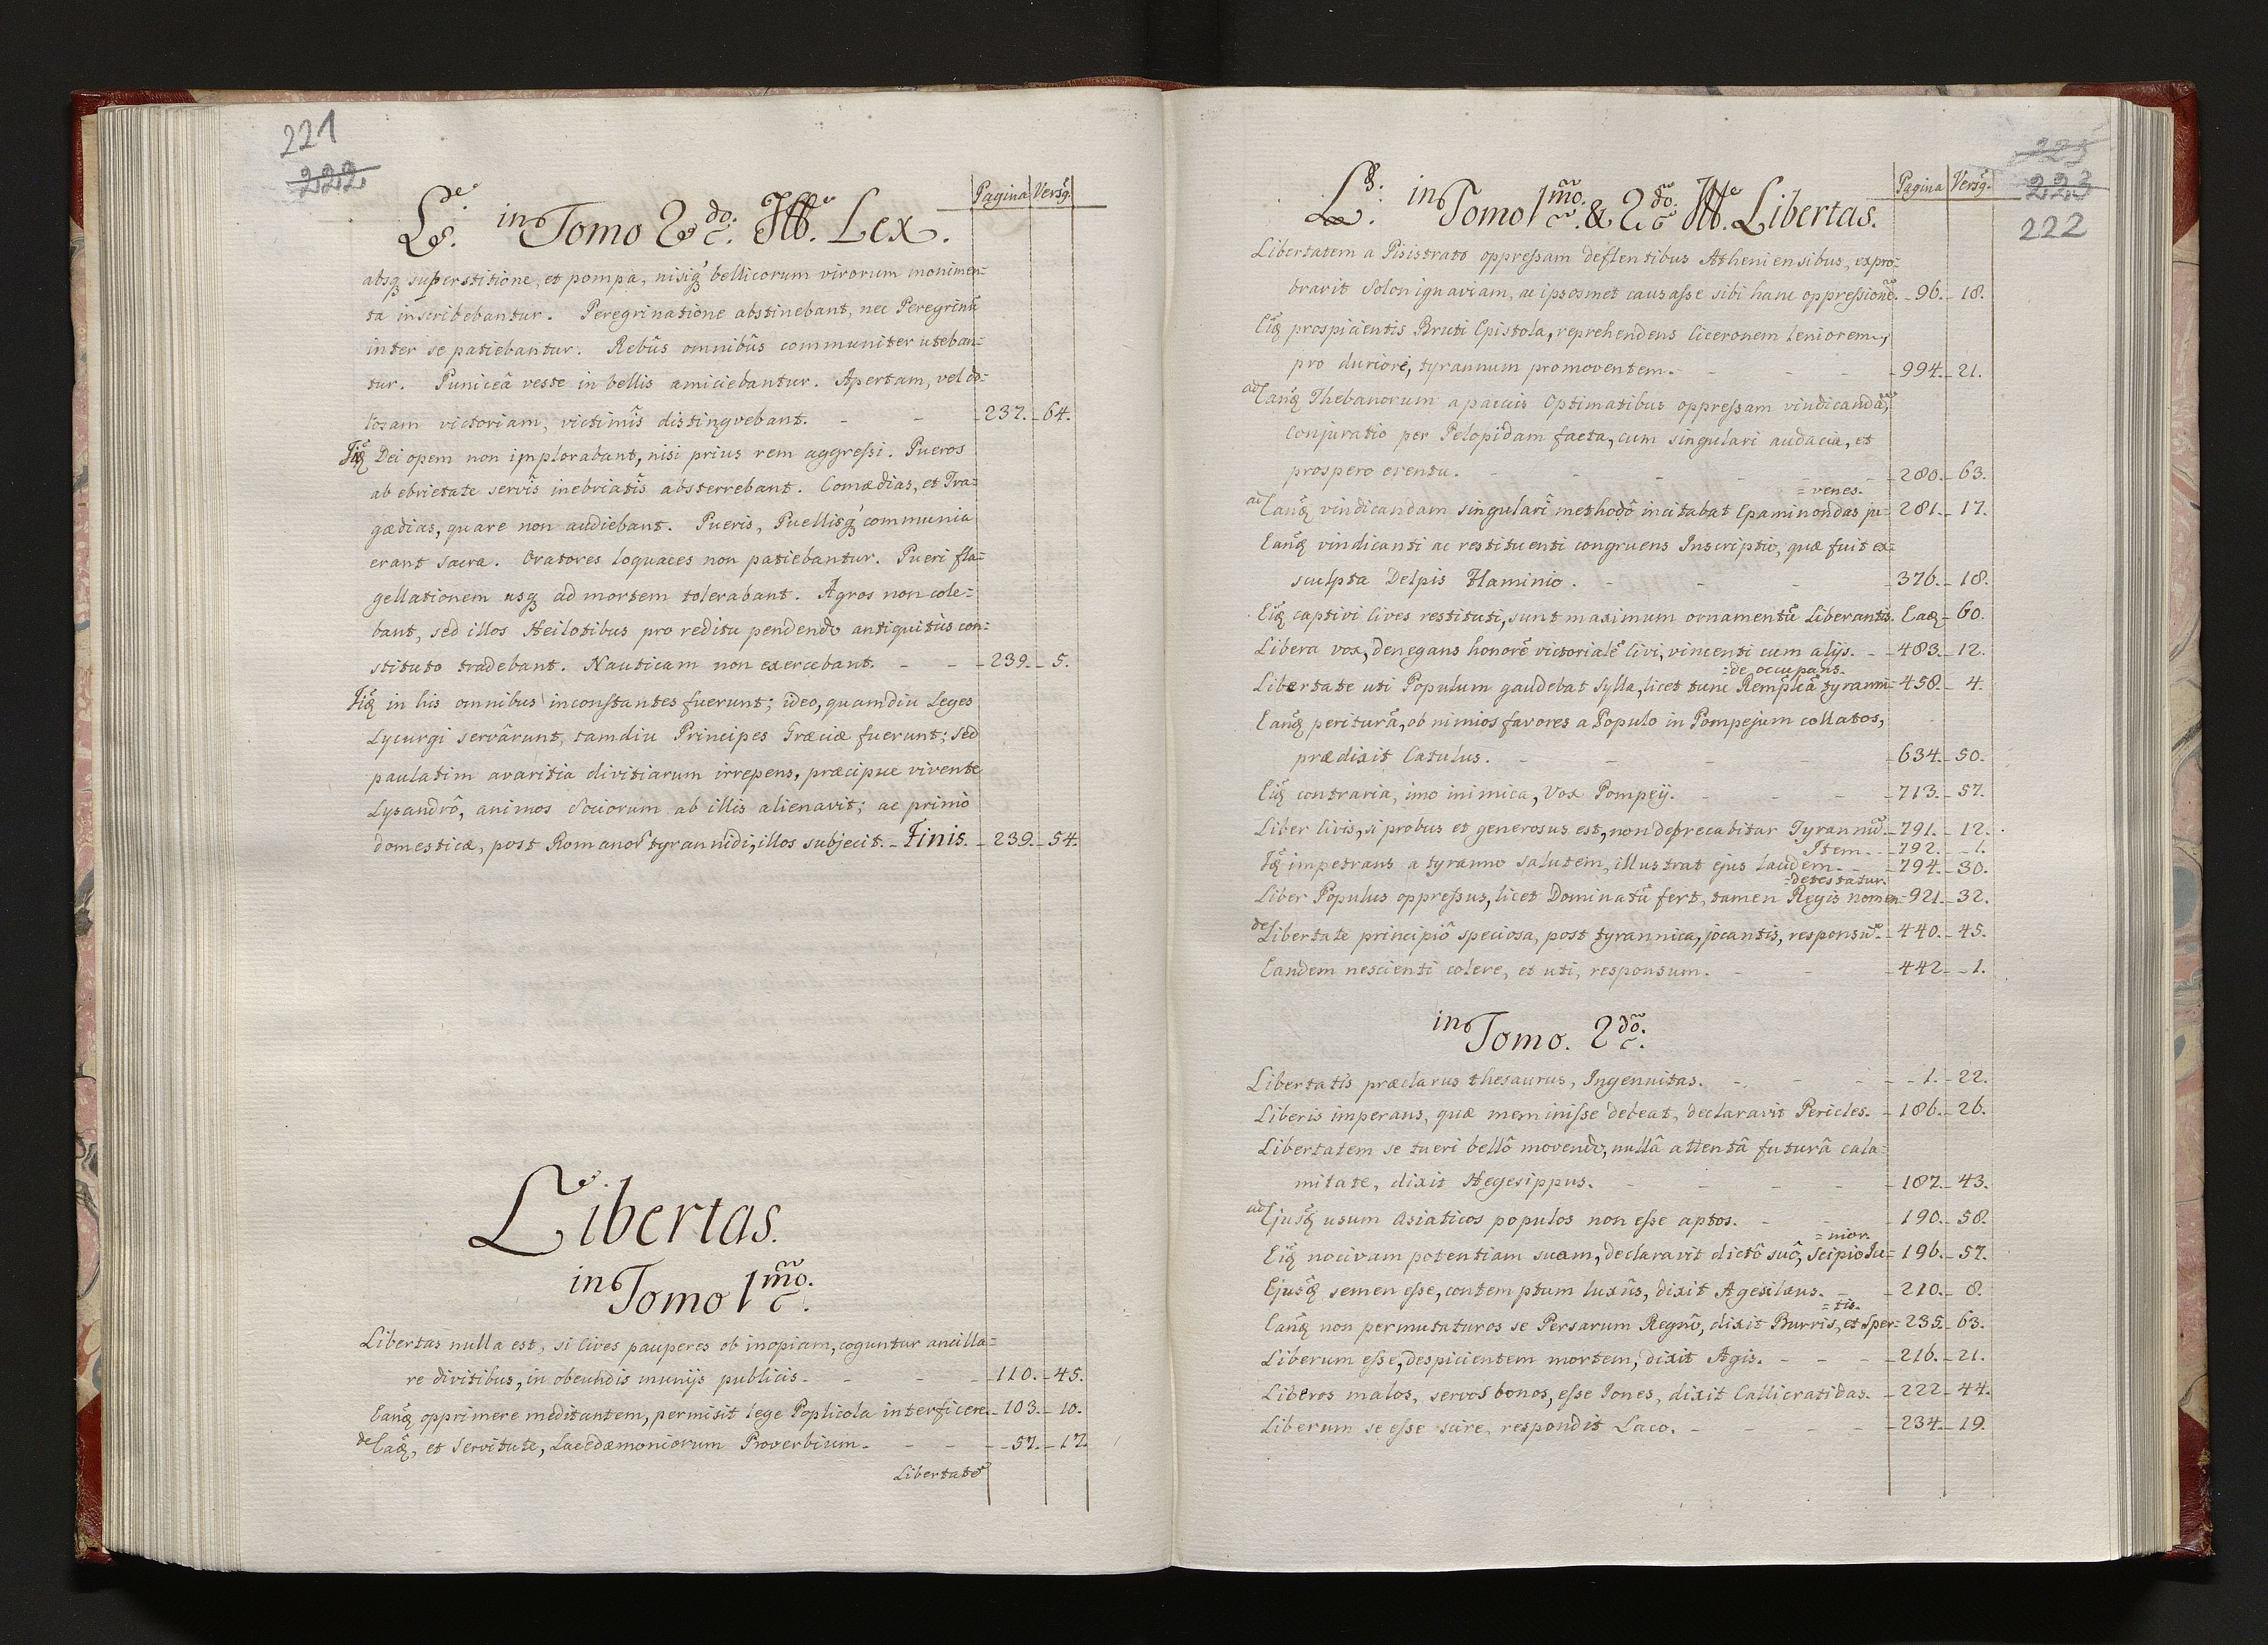 221
222
Pagina Versq.
L. in Tomo 2do. Lex.
absq superstitione, et pompa, nisiq bellicorum virorum monimen=
ta inscribebantur. Peregrinatione abstinebant, nec Peregrinũ
inter se patiebantur. Rebûs omnibûs communiter uteban=
tur. Puniceâ veste in bellis amiciebantur. Apertam, vel do=
losam victoriam, victimîs distingvebant. - - 237. - 64.
Dei opem non implorabant, nisi prius rem aggreſsi. Pueros
ab ebrietate servîs inebriatîs absterrebant. Comædias, et Tra=
gædias, quare non audiebant. Pueris, Puellisq communia
erant sacra. Oratores loquaces non patiebantur. Pueri fla=
gellationem usq ad mortem tolerabant. Agros non cole=
bant, sed illos Heilotibus pro reditu pendendo antiquitùs con=
stituto tradebant. Nauticam non exercebant. - - 239. - 5.
in his omnibus inconstantes fuerunt; ideo, quamdiu Leges
Lycurgi servârunt, tamdiu Principes Græciæ fuerunt; sed
paulatim avaritia divitiarum irrepens, præcipue vivente
Lysandrô, animos Sociorum ab illis alienavit; ac primò
domesticæ, post Romanor tyrannidi, illos subjecit. - Finis. - 239. - 54.
Libertas.
in Tomo 1mo.
Libertas nulla est, si Cives pauperes ob inopiam, coguntur ancilla=
re divitibus, in obeundis munijs publicis. - - - 110. - 45.
Eanq opprimere meditantem, permisit lege Poplicola interficere. - 103. - 10.
de Eaq, et Servitute, Lacedæmoniorum Proverbium. - - - 57. - 17.
Libertatẽ
223
223
222
Pagina Versq.
L. in Tomo 1mo. & 2do. Libertas.
Libertatem a Pisistrato oppreſsam deflentibus Atheniensibus, expro=
bravit Solon ignaviam, ac ipsosmet causaſse sibi hanc oppreſsionẽ. - 96. - 18.
Eiq prospicientis Bruti Epistola, reprehendens Ciceronem leniorem,
pro duriore, tyrannum promoventem. - - - 994. - 21.
ad Eanq Thebanorum a paucis Optimatibus oppreſsam vindicandã,
Conjuratio per Pelopidam facta, cum singulari audacia, et
prospero eventu. - - - 280. - 63.
= venes.
ad Eanq vindicandam singularî methodô incitabat Epaminondas ju= 281. - 17.
Eanq vindicanti ac restituenti congruens Inscriptio, quæ fuit ex=
sculpta Delpis Flaminio. - - - 376. - 18.
Eiq captivi Cives restituti, sunt maximum ornamentũ Liberantis. Eaq - 60.
Libera vox, denegans honorẽ victorialẽ Civi, vincenti cum alijs. - 483. - 12.
=de occupans.
Libertate uti Populum gaudebat Sylla, licet tunc Rempłcã tyranni= 458. - 4.
Eanq perituram, ob nimios favores a Populo in Pompejum collatos,
prædixit Catulus. - - - 634. - 50.
Eiq contraria, imo inimica, Vox Pompeij. - - - 713. - 57.
Liber Civis, si probus et generosus est, non deprecabitur Tyrannũ. - 791. - 12.
Item. - 792. - 1.
impetrans a tyranno Salutem, illustrat ejus laudem. - 794. - 30.
=detestatur.
Liber Populus oppreſsus, licet Dominatũ fert, tamen Regis nomen= 921. - 32.
de Libertate principiô speciosa, post tyrannica, jocantis, responsũ. - 440. - 45.
Eandem nescienti colere, et uti, responsum. - - 442. - 1.
in Tomo. 2do.
Libertatîs præclarus thesaurus, Ingenuitas. - - - 1. - 22.
Liberis imperans, quæ meminiſse debeat, declaravit Pericles. - 186. - 26.
Libertatem se tueri bellô movendo, nullâ attentâ futurâ cala=
mitate, dixit Hegesippus. - - - 187. - 43.
ad Ejusq usum Asiaticos populos non eſse aptos. - - 190. - 58.
= nior.
Eiq nocivam potentiam suam, declaravit dictô suô, Scipio Ju= 196. - 57.
Ejusq semen eſse, contemptum luxûs, dixit Agesilaus. - - 210. - 8.
= tis.
Eanq non permutaturos se Persarum Regnô, dixit Burris, et Sper= 235. - 63.
Liberum eſse, despicientem mortem, dixit Agis. - - - 216. - 21.
Liberos malos, servos bonos, eſse Iones, dixit Callicratidas. - 222 - 44.
Liberum se eſse scire, respondit Laco. - - - 234. - 19.